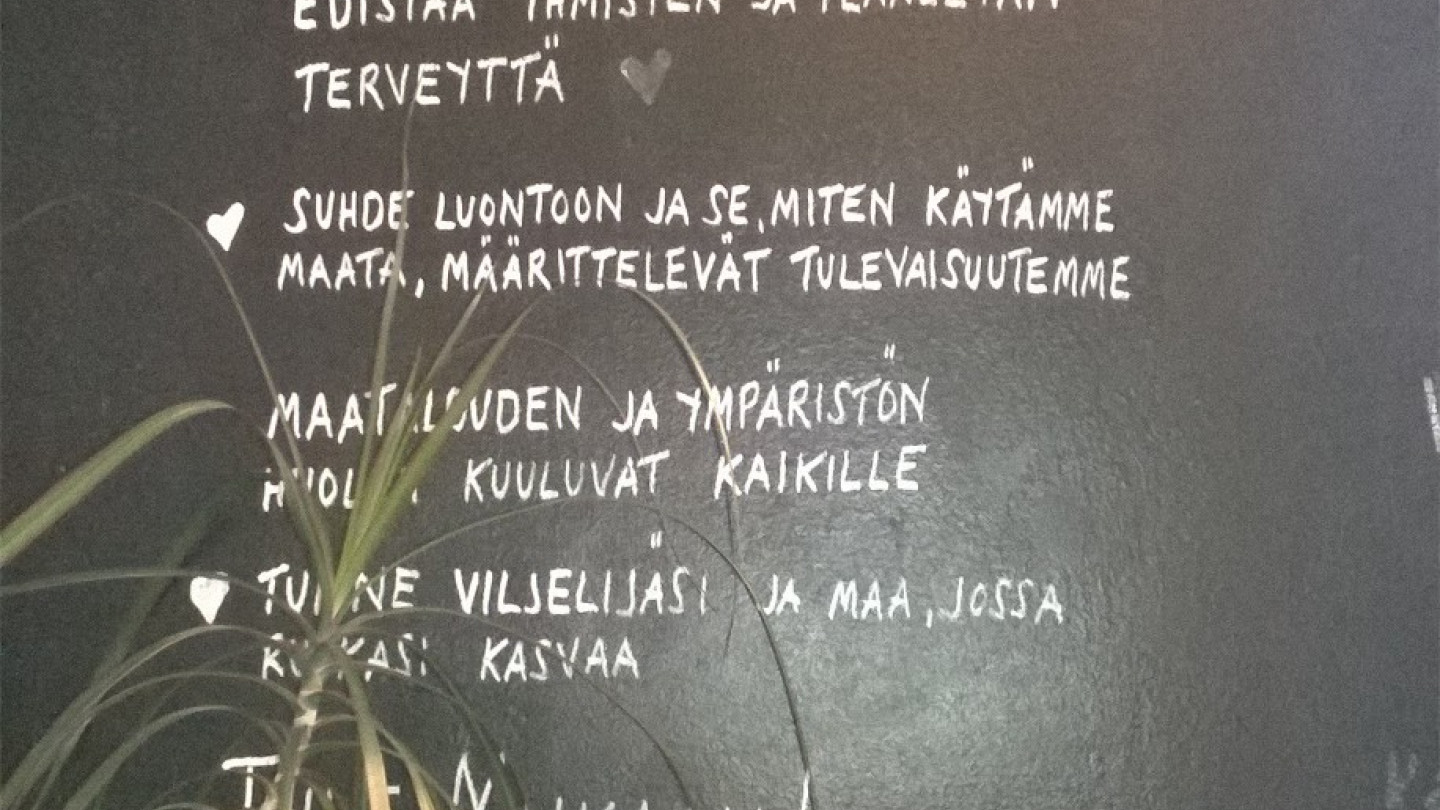 EDISTÄÄ IHMISTEN JA PLANEETAN
TERVEYTTÄ
SUHDE LUONTOON JA SE, MITEN KÄYTÄMME
MAATA, MÄÄRITTELEVÄT TULEVAISUUTEMME
MAATALOUDEN JA YMPÄRISTÖN
KUULUVAT KAIKILLE
TUNNE VILJELIJÄSI JA MAA, JOSSA
RUOKASI KASVAA